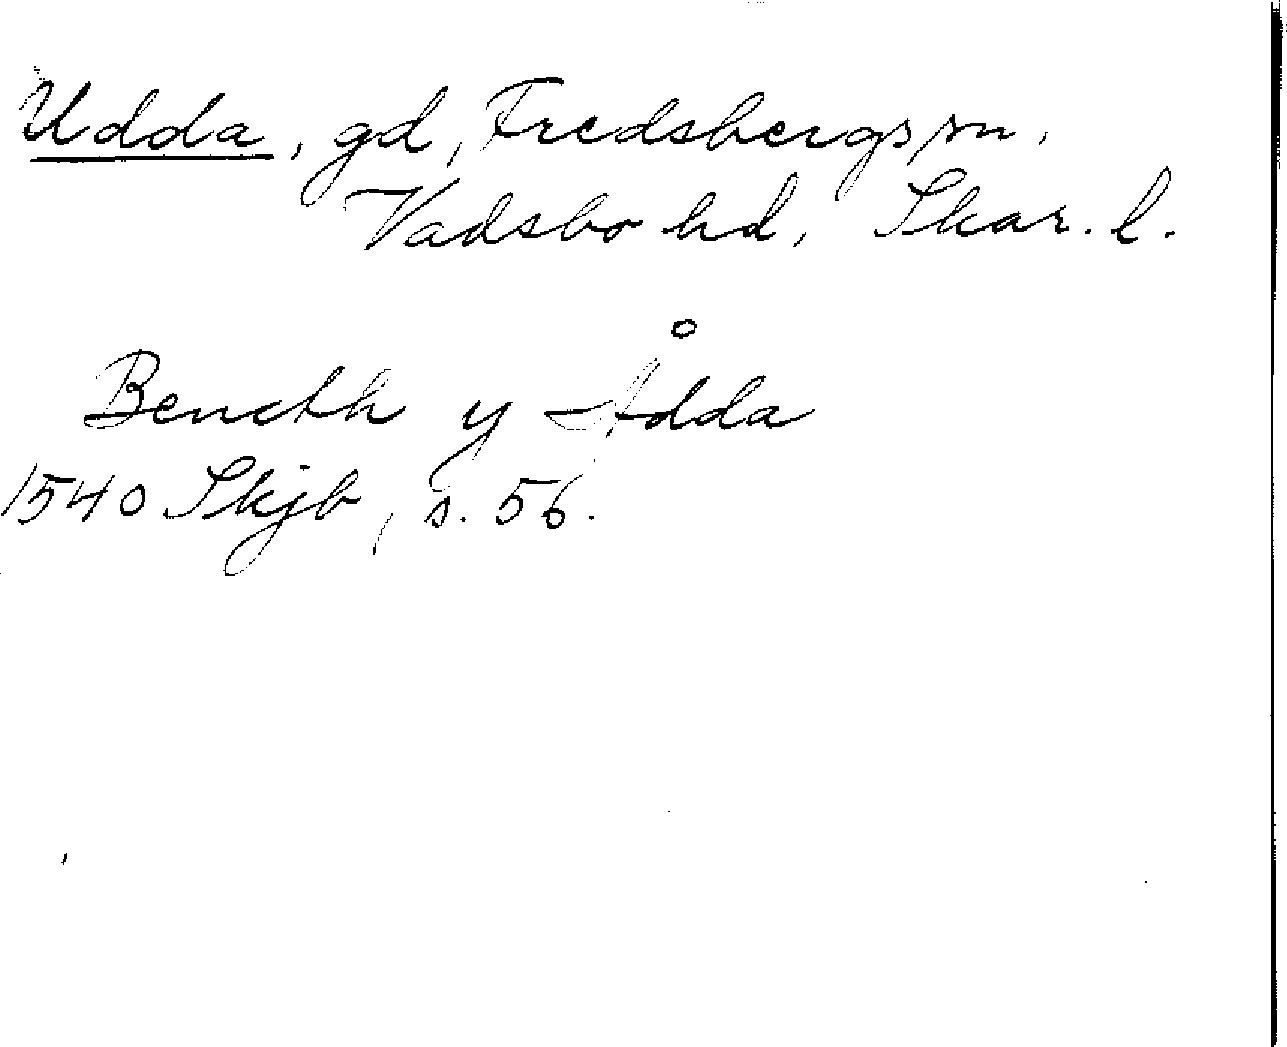 Udda, gd, Fredsbergs sn,
Vadsbo hd, Skar. l.
Benckth y Ådda
1540 Skjb, s. 56.